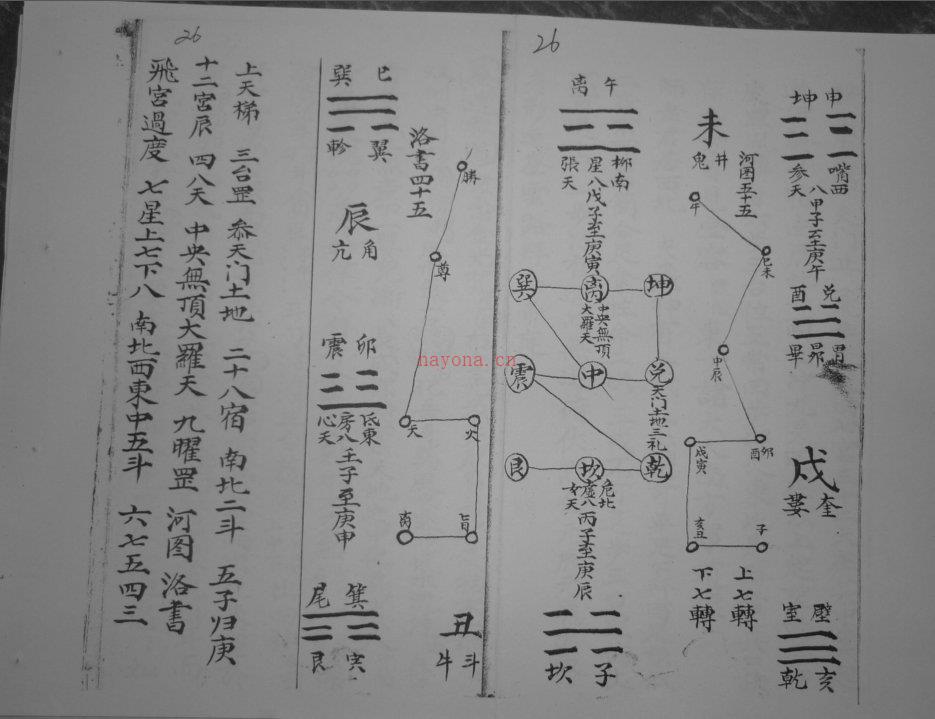 26
申
坤
嘴西
参天
八甲子至庚午
兑
酉
胃
昴
畢
戌
奎
婁
壁
室
亥
乾
未
井
鬼
河图五十五
午
巳未
申辰
卯酉
戌寅
亥丑
子
上七轉
下七轉
午
离
柳南
星八戊子至庚寅
張天
巽
离
坤
中央無頂
大羅天
震
中
兑
天门土地三礼
艮
坎
乾
危北
虛八丙子至庚辰
女天
子
坎
26
巳
巽
翼
軫
洛書四十五
辰
角
亢
勝
尊
天
火
卯
震
氐東
房八壬子至庚申
心天
箕
尾
寅
艮
丑
斗
牛
上天梯 三台罡 叅天门土地 二十八宿 南北二斗 五子归庚
十二宮辰 四八天 中央無頂大羅天 九曜罡 河图 洛書
飛宮過度 七星上七下八 南北西東中五斗 六七五四三
hayona.cn